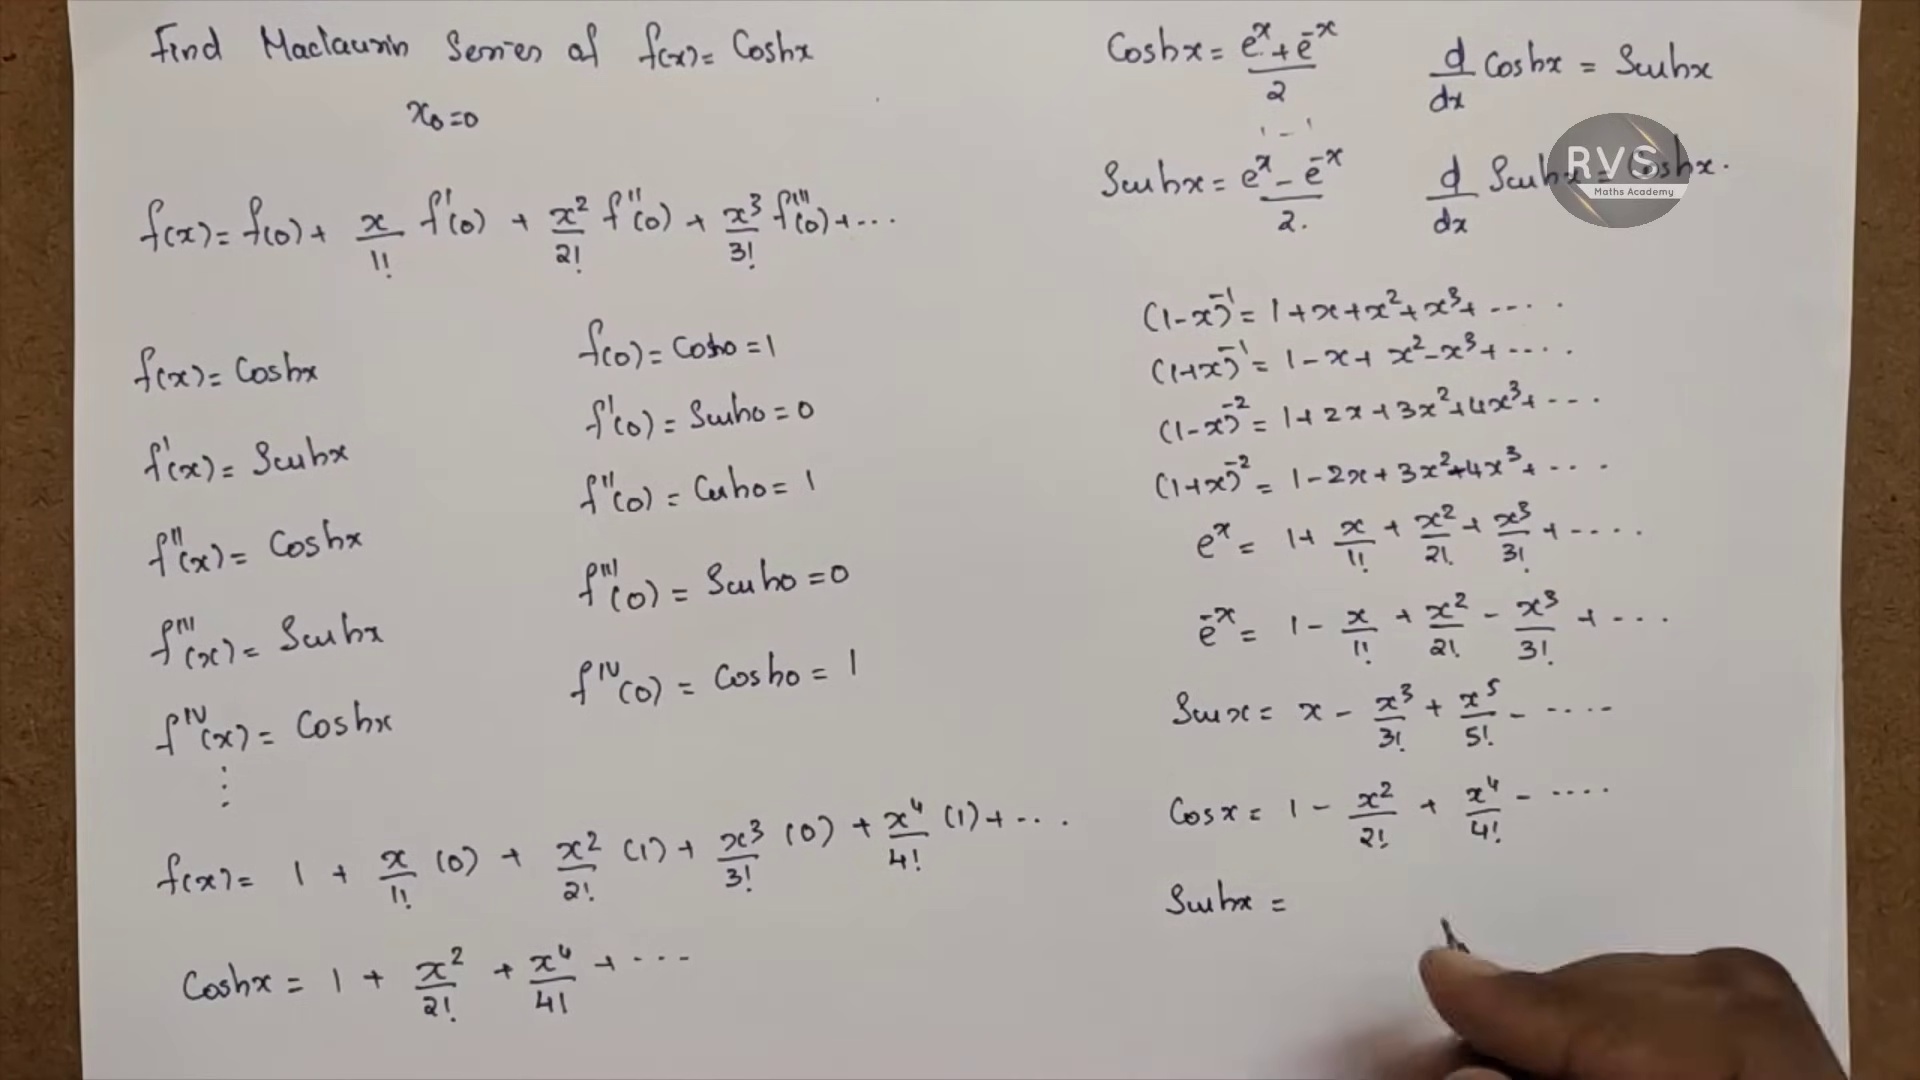 Find Maclaurin Series of f(x) = Coshx
x₀=0
f(x) = f(0) + x/1! f'(0) + x²/2! f''(0) + x³/3! f'''(0) + ...
f(x) = Coshx
f(0) = Cosh0 = 1
f'(x) = Sinhx
f'(0) = Sinh0 = 0
f''(x) = Coshx
f''(0) = Cosh0 = 1
f'''(x) = Sinhx
f'''(0) = Sinh0 = 0
f^IV(x) = Coshx
f^IV(0) = Cosh0 = 1
⋮
f(x) = 1 + x/1! (0) + x²/2! (1) + x³/3! (0) + x⁴/4! (1) + ...
Coshx = 1 + x²/2! + x⁴/4! + ...
Coshx = (eˣ + e⁻ˣ)/2
d/dx Coshx = Sinhx
1 - 1
Sinhx = (eˣ - e⁻ˣ)/2.
d/dx Sinhx = Coshx.
RVS
Maths Academy
(1-x)⁻¹ = 1+x+x²+x³+ .... .
(1+x)⁻¹ = 1-x+x²-x³+ ....
(1-x)⁻² = 1+2x+3x²+4x³+ ...
(1+x)⁻² = 1-2x+3x²-4x³+ ...
eˣ = 1+ x/1! + x²/2! + x³/3! + ....
e⁻ˣ = 1 - x/1! + x²/2! - x³/3! + ...
Sinx = x - x³/3! + x⁵/5! - ....
Cosx = 1 - x²/2! + x⁴/4! - ....
Sinhx =